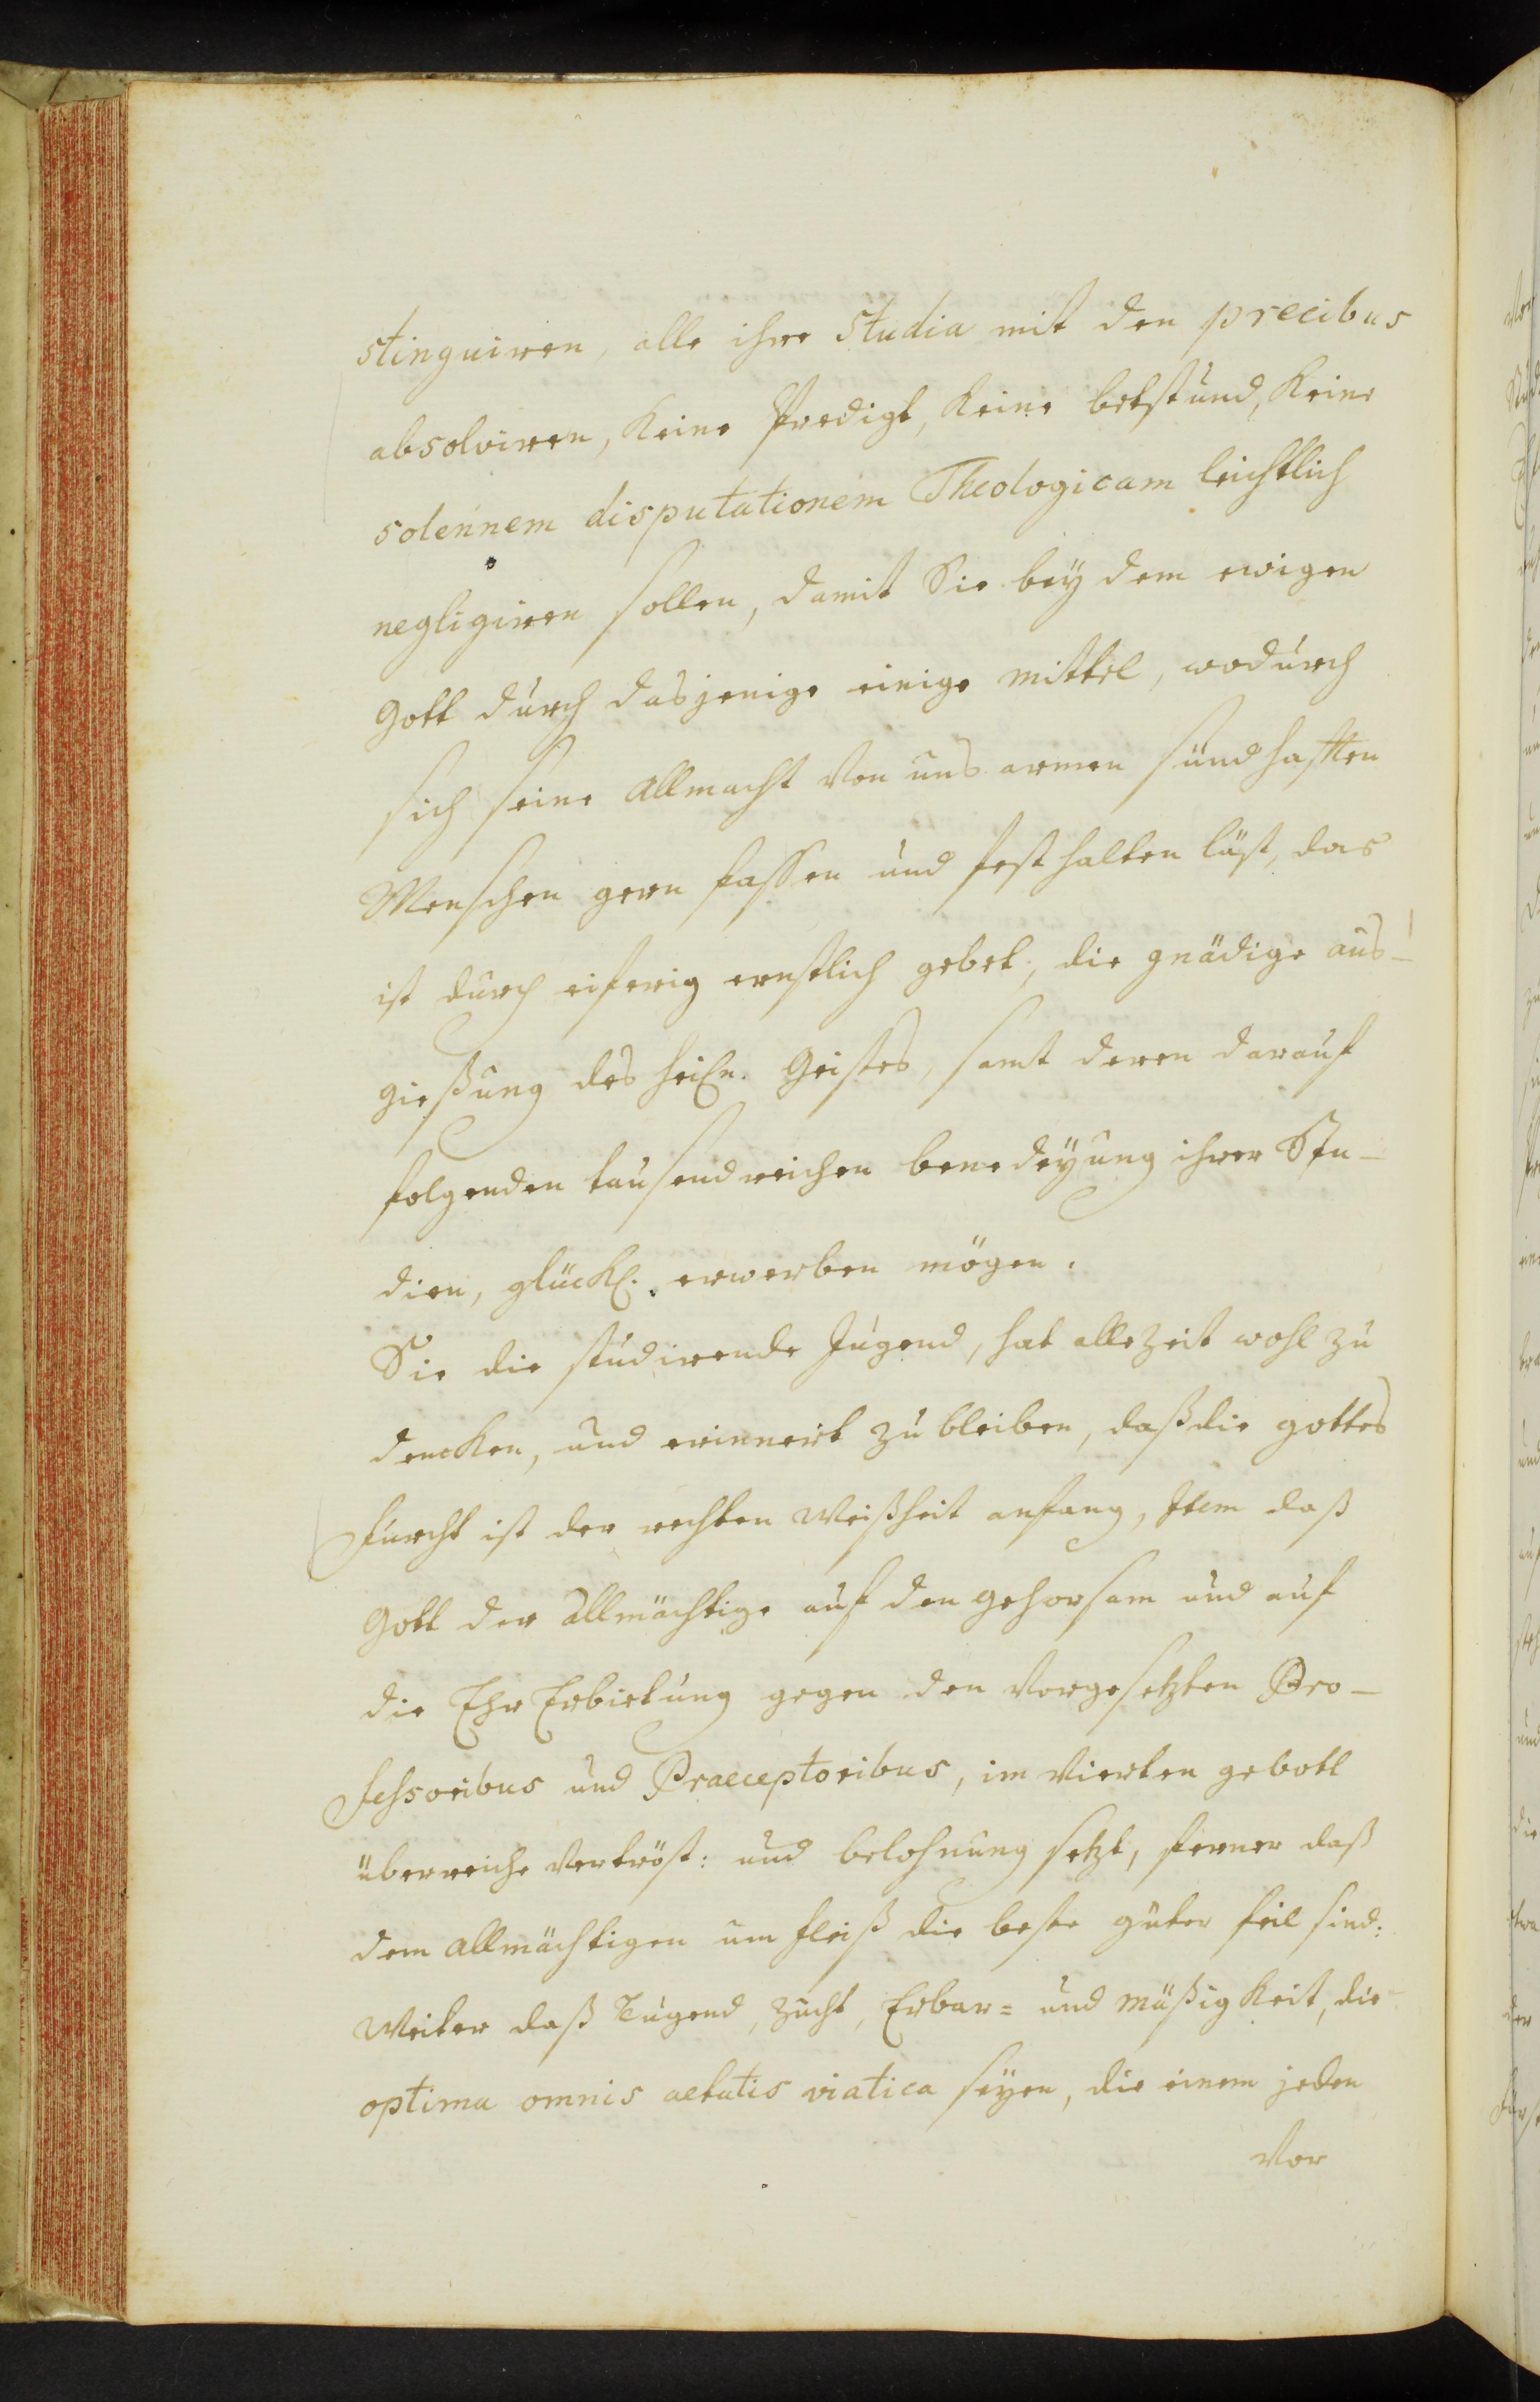 stinguiren, alle ihre Studia mit den precibus
absolviren, keine Predigt, keine betstund, keine
solennem disputationem Theologicam leichtlich
negligiren sollen, damit Sie bey dem ewigen
Gott durch dasjenige einige mittel, wodurch
sich seine Allmacht von uns armen sündhafften
Menschen gern fassen und fest halten läst, das
ist durch eiferig ernstlich gebet, die gnädige aus-
gießung des heiln. Geistes, samt deren darauf
folgenden tausendreichen benedeyung ihrer Stu-
dien, glückl. erwerben mögen.
Sie die studirende Jugend, hat allezeit wohl zu
dencken, und erinnert zu bleiben, daß die gottes
furcht ist der rechten Weißheit anfang, Item daß
Gott der Allmächtige auf den gehorsam und auf
die EhrErbietung gegen den Vorgesetzten Pro-
fessoribus und Praeceptoribus, im Vierten gebott
überreiche Vertröst: und belohnung setzt, ferner daß
dem Allmächtigen um fleiß die beste güter feil sind:
Weiter daß Tugend, Zucht, Erbar= und mäßigkeit, die
optima omnis aetatis viatica seyen, die einem jeden
Vor